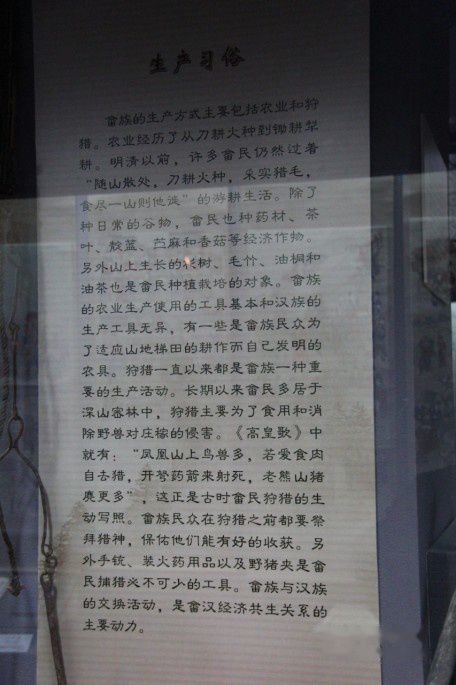 生产习俗
畲族的生产方式主要包括农业和狩
猎。农业经历了从刀耕火种到锄耕犁
耕。明清以前，许多畲民仍然过着
“随山散处，刀耕火种，采实猎毛，
食尽一山则他徙”的游耕生活。除了
种日常的谷物，畲民也种药材、茶
叶、靛蓝、苎麻和香菇等经济作物。
另外山上生长的杉树、毛竹、油桐和
油茶也是畲民种植栽培的对象。畲族
的农业生产使用的工具基本和汉族的
生产工具无异，有一些是畲族民众为
了适应山地梯田的耕作而自己发明的
农具。狩猎一直以来都是畲族一种重
要的生产活动。长期以来畲民多居于
深山密林中，狩猎主要为了食用和消
除野兽对庄稼的侵害。《高皇歌》中
就有：“凤凰山上鸟兽多，若爱食肉
自去猎，开弩药箭来射死，老熊山猪
麂更多”，这正是古时畲民狩猎的生
动写照。畲族民众在狩猎之前都要祭
拜猎神，保佑他们能有好的收获。另
外手铳、装火药用品以及野猪夹是畲
民捕猎必不可少的工具。畲族与汉族
的交换活动，是畲汉经济共生关系的
主要动力。